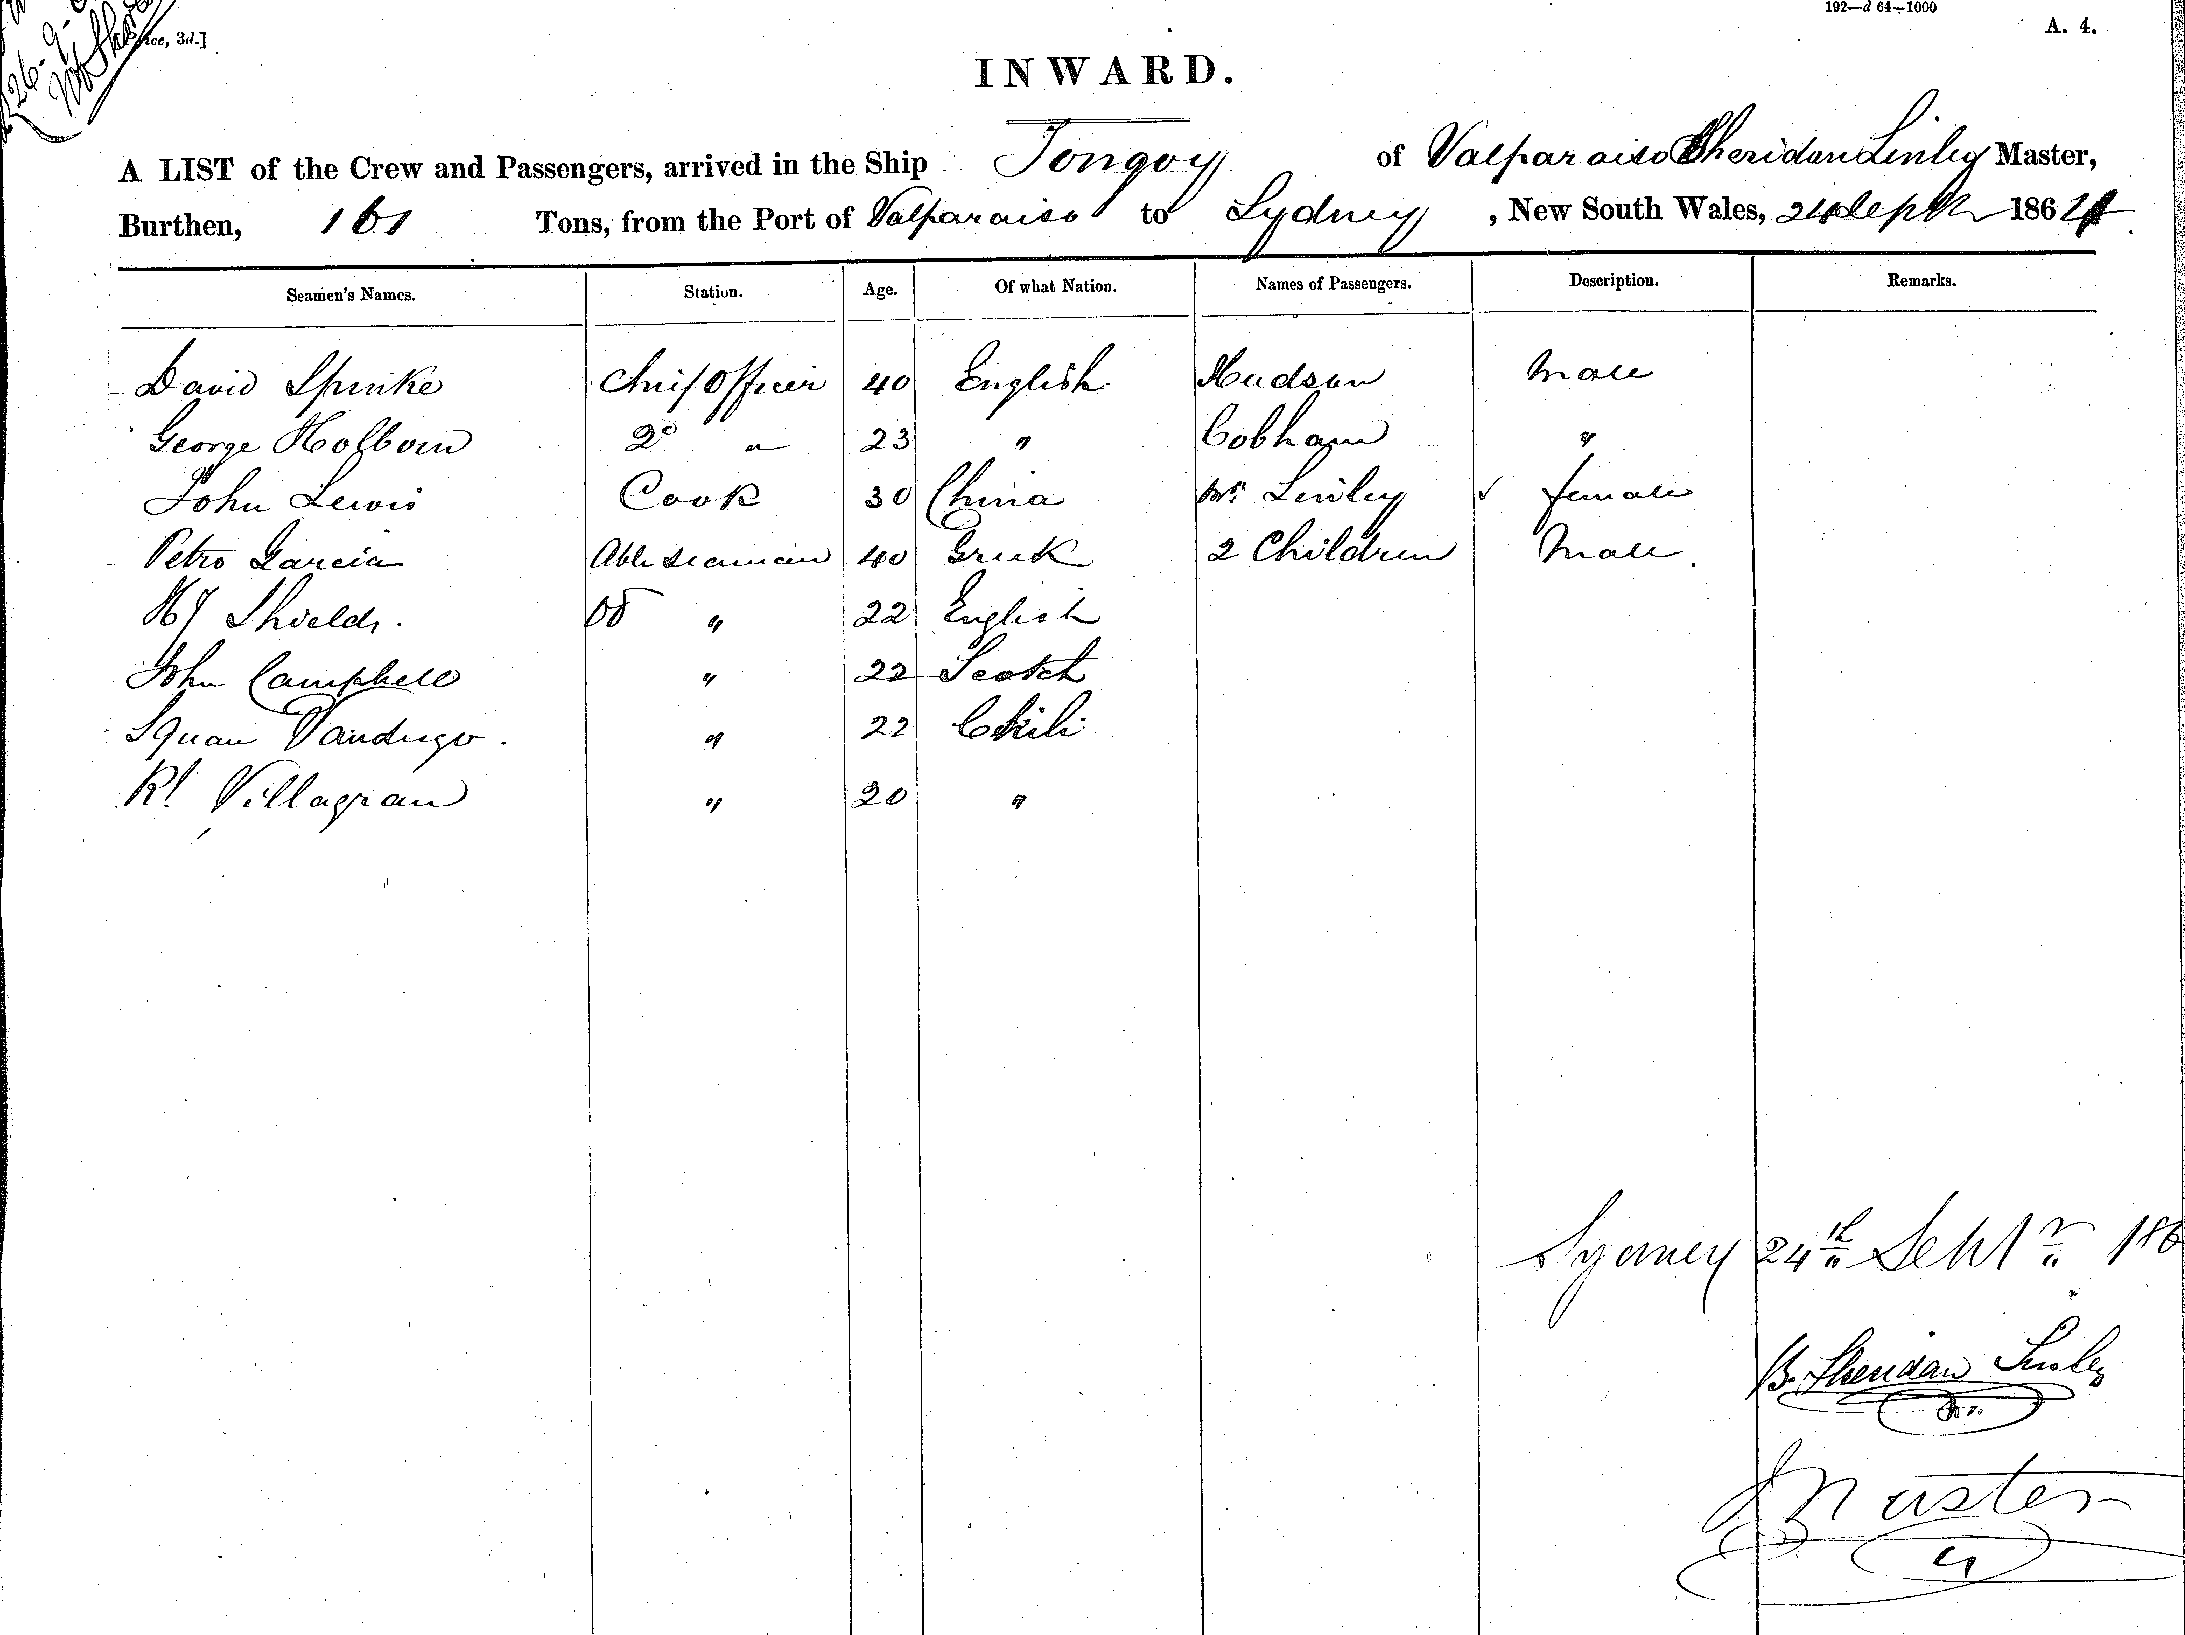 192—d 64—1000
A. 4.
26-9-
3d.]
INWARD.
A LIST of the Crew and Passengers, arrived in the Ship Tongoy of Valparaiso Sheridan Linley Master,
Burthen, 161 Tons, from the Port of Valparaiso to Sydney , New South Wales, 24 Septr 1864
Seamen's Names. Station. Age. Of what Nation. Names of Passengers. Description. Remarks.
David Spinke Chief Officer 40 English Hudson Male
George Holborn 2d " 23 " Cobham "
John Lewis Cook 30 China Mrs Linley ✓ female
Petro Garcia Able Seaman 40 Greek 2 Children Male.
Hy Shields. Od " 22 English
John Campbell " 22 Scotch
Squan " 22 Chili
Rt Villagran " 20 "
Sydney 24th Septr 186
B. Sheridan Linley
Master